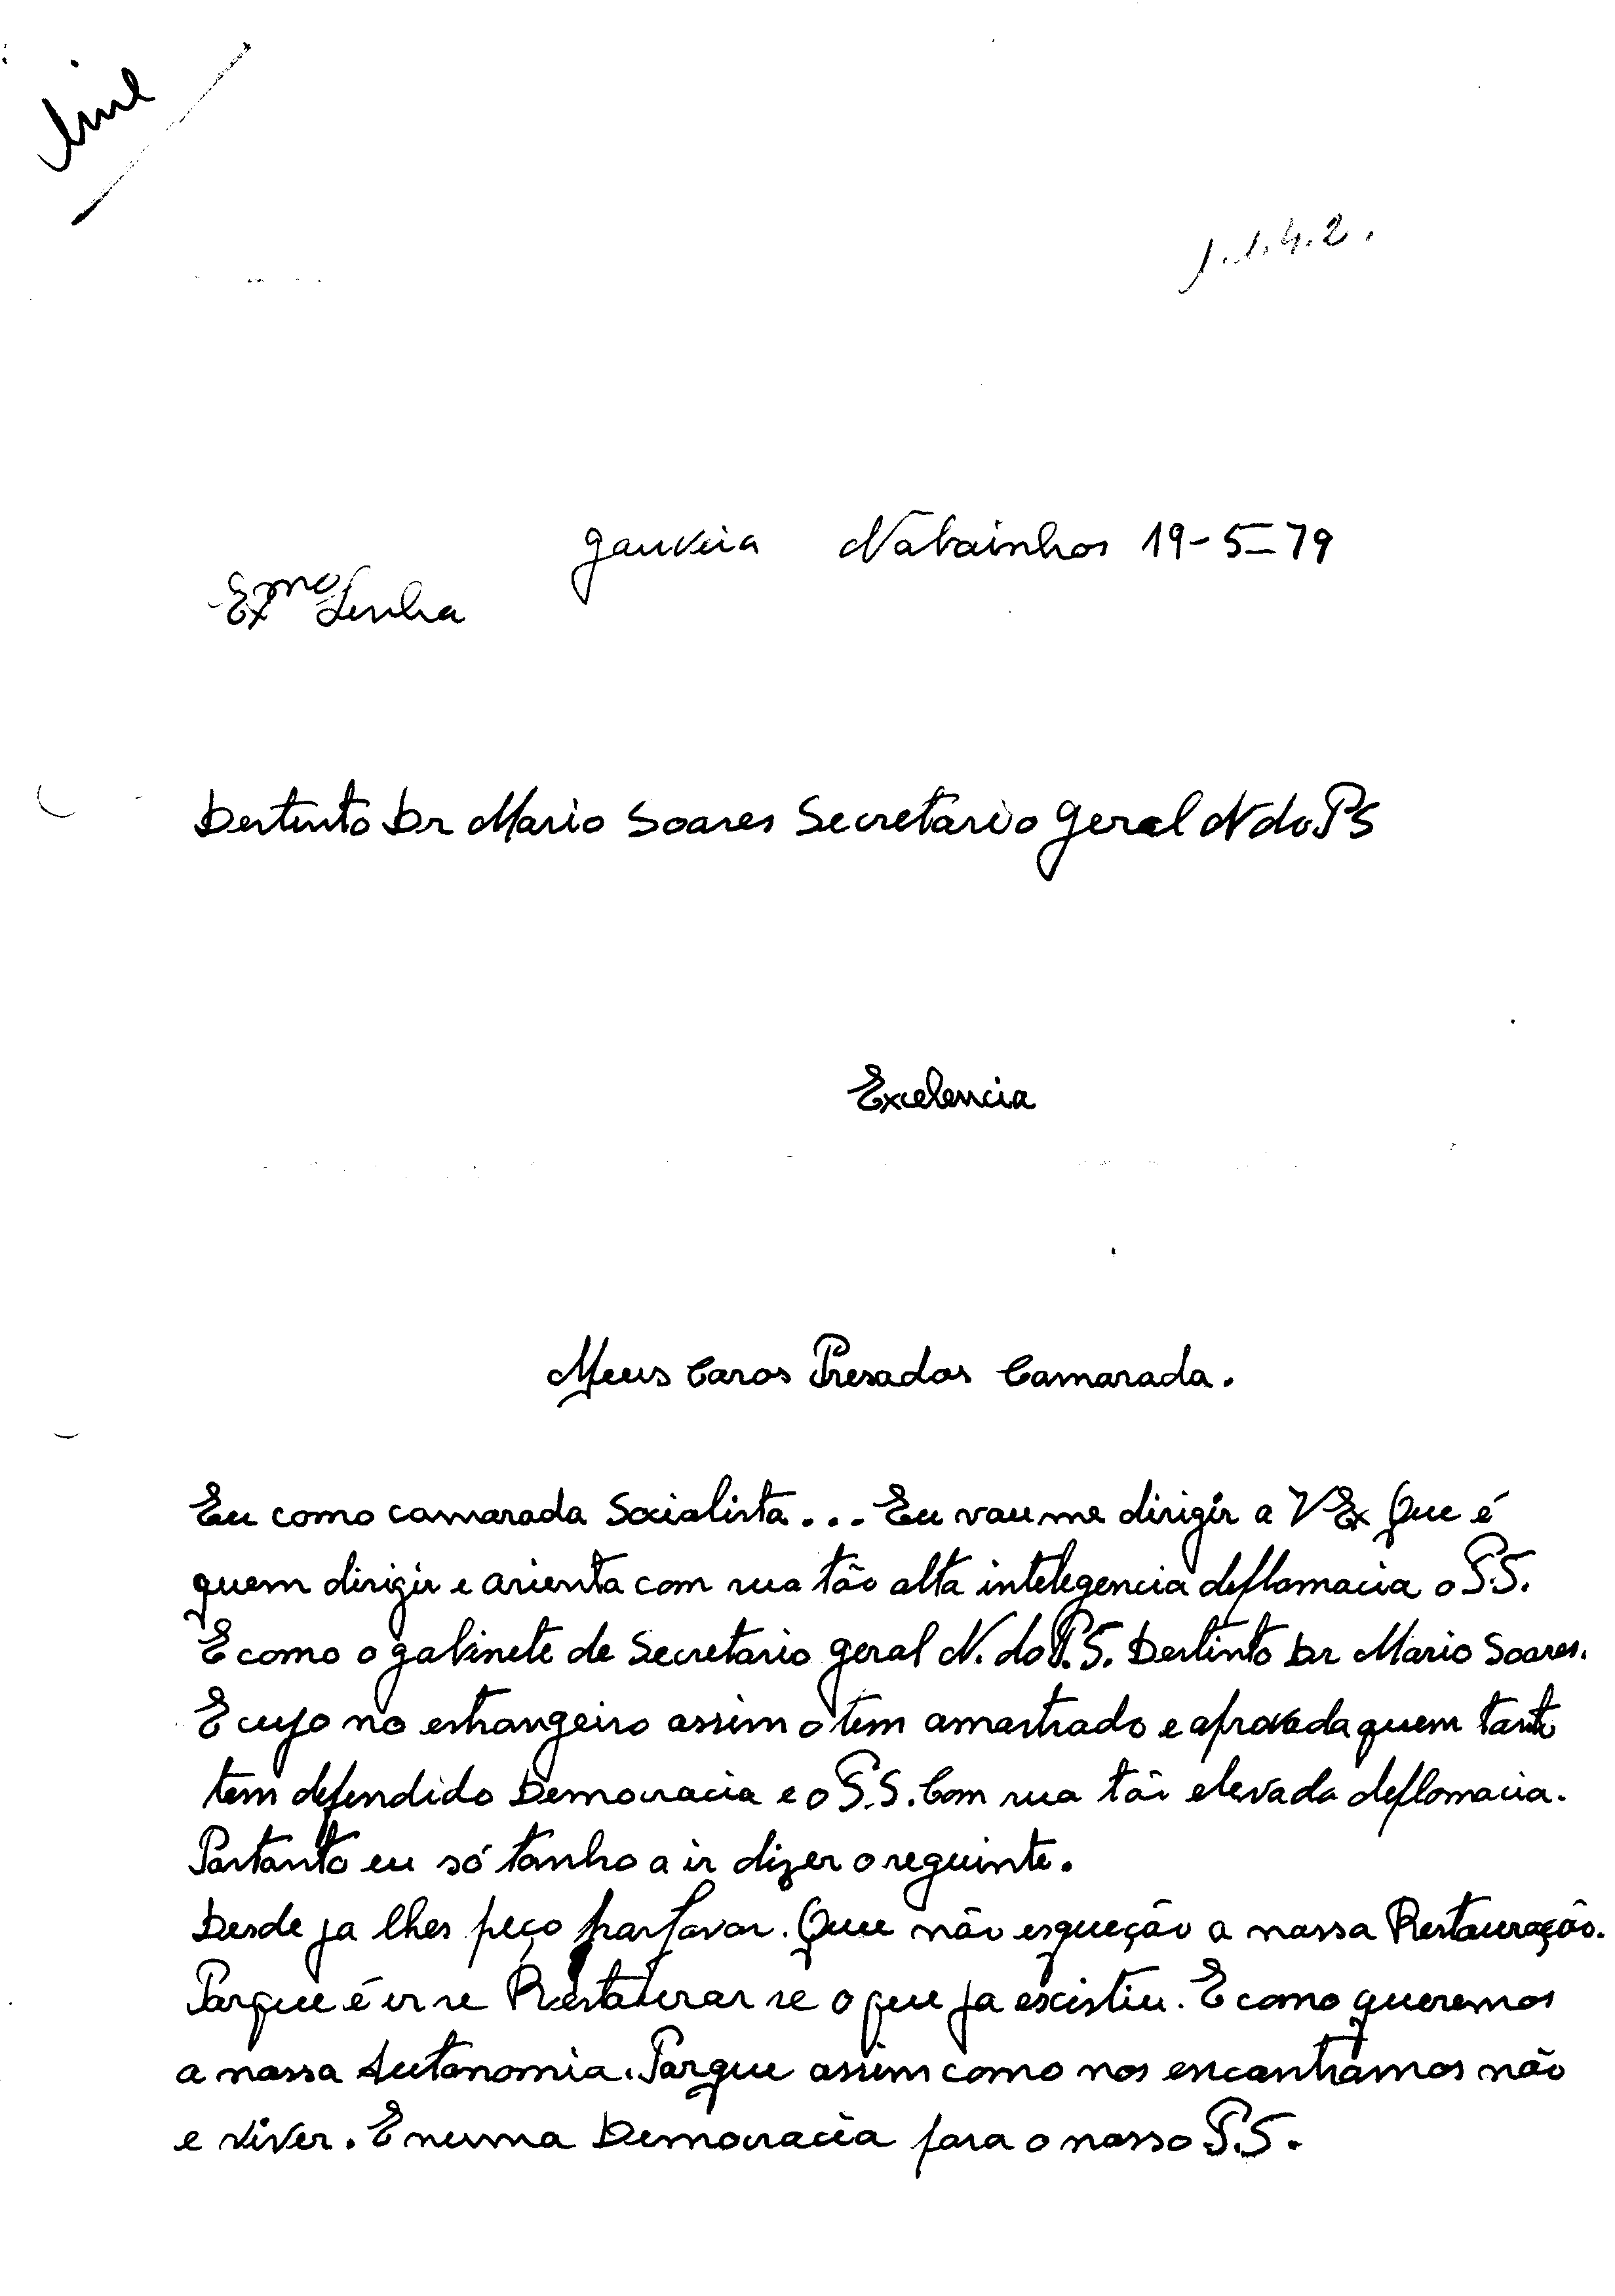 1.1.4.2.
Gouveia Nabainhos 19-5-79
Exmo Senhor
Destinto Dr Mario Soares Secretario Geral N do PS
Excelencia
Meus Caros Presados Camarada.
Eu como camarada Socialista... Eu vou me dirigir a V Ex Que é
quem dirigir e orienta com sua tão alta intelegencia deplomacia o P.S.
E como o gabinete de Secretario Geral N. do P.S. Destinto Dr Mario Soares.
E cujo no estrangeiro assim o tem amostrado e aprovado quem tanto
tem defendido Democracia e o P.S. Com sua tão elevada deplomacia.
Portanto eu só tanho a ir dizer o seguinte.
Desde ja lhes peço por favor. Que não esqueção a nossa Restauração.
Porque é ir se Restaurar se o que ja escistiu. E como queremos
a nossa Autonomia. Porque assim como nos encontramos não
e viver. E numa Democracia para o nosso P.S.